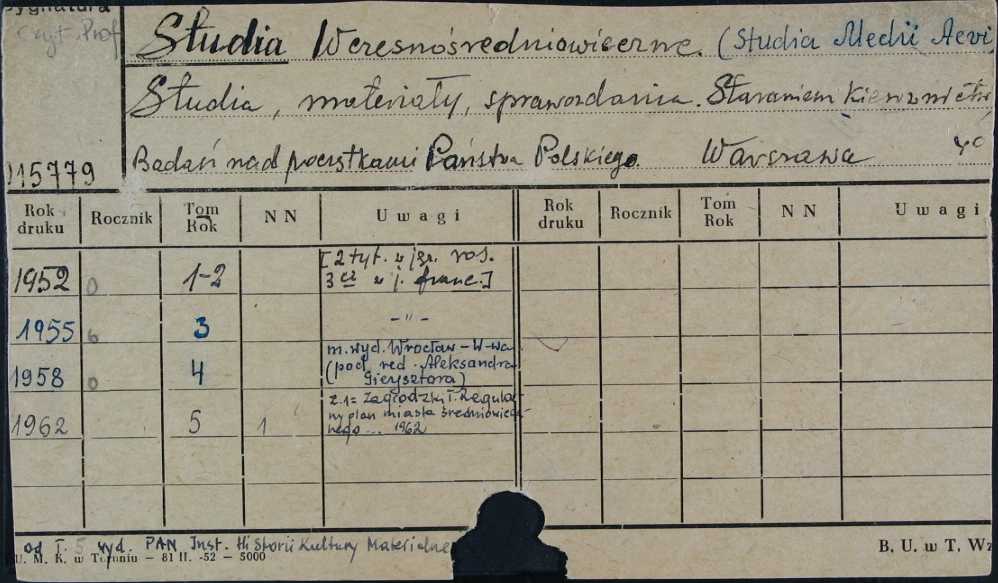 Sygnatura
Czyt. Prof
Studia Wczesnośredniowieczne. (Studia Medii Aevi
Studia, materiały, sprawozdania. Staraniem Kierownictw
Badań nad początkami Państwa Polskiego. Warszawa 4°
115779
Rok druku Rocznik Tom Rok NN Uwagi Rok druku Rocznik Tom Rok NN Uwagi
1952 0 1-2 [2 tyt. w jęz. ros.
3 cz w j. franc.]
1955 6 3 -"-
1958 0 4 m. wyd. Wrocław-W-wa
(pod red. Aleksandra
Gieysztora)
1962 5 1 z.1= Zagrodzki T. Regular-
ny plan miasta średniowiecz-
nego ... 1962
od T. 5 wyd. PAN Inst. Historii Kultury Materialne
U. M. K. w Toruniu – 81 II. -52 – 5000
B. U. w T. Wz